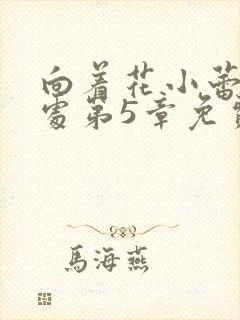 向着花小蕾
处第5章免
馬海燕